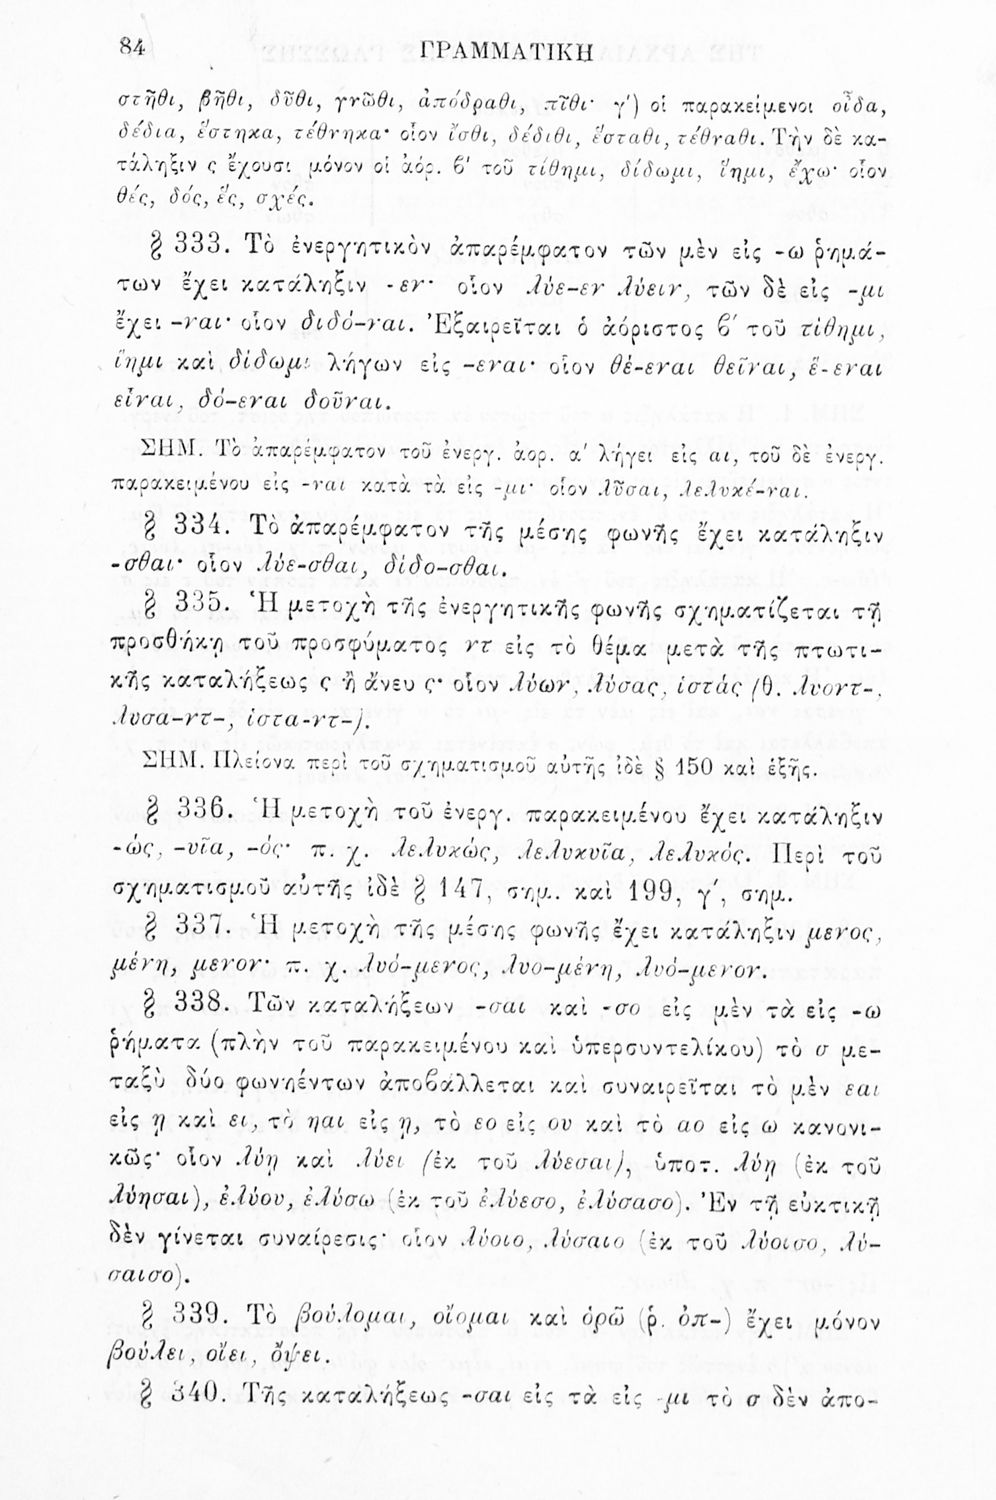 84 ΓΡΑΜΜΑΤΙΚΗ
στῆθι, βῆθι, δῦθι, γνῶθι, ἀπόδραθι, πῖθι· γ') οἱ παρακείμενοι οἶδα,
δέδια, ἕστηκα, τέθνηκα· οἷον ἴσθι, δέδιθι, ἕσταθι, τέθναθι. Τὴν δὲ κα-
τάληξιν ς ἔχουσι μόνον οἱ ἀόρ. β' τοῦ τίθημι, δίδωμι, ἵημι, ἔχω· οἷον
θές, δός, ἕς, σχές.
§ 333. Τὸ ἐνεργητικὸν ἀπαρέμφατον τῶν μὲν εἰς -ω ῥημά-
των ἔχει κατάληξιν -εν· οἷον λύε-εν λύειν, τῶν δὲ εἰς -μι
ἔχει -ναι· οἷον διδό-ναι. Ἐξαιρεῖται ὁ ἀόριστος β' τοῦ τίθημι,
ἵημι καὶ δίδωμι λήγων εἰς -εναι· οἷον θέ-εναι θεῖναι, ἕ-εναι
εἷναι, δό-εναι δοῦναι.
ΣΗΜ. Τὸ ἀπαρέμφατον τοῦ ἐνεργ. ἀορ. α' λήγει εἰς αι, τοῦ δὲ ἐνεργ.
παρακειμένου εἰς -ναι κατὰ τὰ εἰς -μι· οἷον λῦσαι, λελυκέ-ναι.
§ 334. Τὸ ἀπαρέμφατον τῆς μέσης φωνῆς ἔχει κατάληξιν
-σθαι· οἷον λύε-σθαι, δίδο-σθαι.
§ 335. Ἡ μετοχὴ τῆς ἐνεργητικῆς φωνῆς σχηματίζεται τῇ
προσθήκῃ τοῦ προσφύματος ντ εἰς τὸ θέμα μετὰ τῆς πτωτι-
κῆς καταλήξεως ς ἢ ἄνευ ς· οἷον λύων, λύσας, ἱστάς (θ. λυοντ-,
λυσα-ντ-, ἱστα-ντ-).
ΣΗΜ. Πλείονα περὶ τοῦ σχηματισμοῦ αὐτῆς ἰδὲ § 150 καὶ ἑξῆς.
§ 336. Ἡ μετοχὴ τοῦ ἐνεργ. παρακειμένου ἔχει κατάληξιν
-ώς, -υῖα, -ός· π. χ. λελυκώς, λελυκυῖα, λελυκός. Περὶ τοῦ
σχηματισμοῦ αὐτῆς ἰδὲ § 147, σημ. καὶ 199, γ', σημ.
§ 337. Ἡ μετοχὴ τῆς μέσης φωνῆς ἔχει κατάληξιν μενος,
μένη, μενον· π. χ. λυό-μενος, λυο-μένη, λυό-μενον.
§ 338. Τῶν καταλήξεων -σαι καὶ -σο εἰς μὲν τὰ εἰς -ω
ῥήματα (πλὴν τοῦ παρακειμένου καὶ ὑπερσυντελίκου) τὸ σ με-
ταξὺ δύο φωνηέντων ἀποβάλλεται καὶ συναιρεῖται τὸ μὲν εαι
εἰς ῃ καὶ ει, τὸ ηαι εἰς ῃ, τὸ εο εἰς ου καὶ τὸ αο εἰς ω κανονι-
κῶς· οἷον λύῃ καὶ λύει (ἐκ τοῦ λύεσαι), ὑποτ. λύῃ (ἐκ τοῦ
λύησαι), ἐλύου, ἐλύσω (ἐκ τοῦ ἐλύεσο, ἐλύσασο). Ἐν τῇ εὐκτικῇ
δὲν γίνεται συναίρεσις· οἷον λύοιο, λύσαιο (ἐκ τοῦ λύοισο, λύ-
σαισο).
§ 339. Τὸ βούλομαι, οἴομαι καὶ ὁρῶ (ῥ. ὀπ-) ἔχει μόνον
βούλει, οἴει, ὄψει.
§ 340. Τῆς καταλήξεως -σαι εἰς τὰ εἰς -μι τὸ σ δὲν ἀπο-